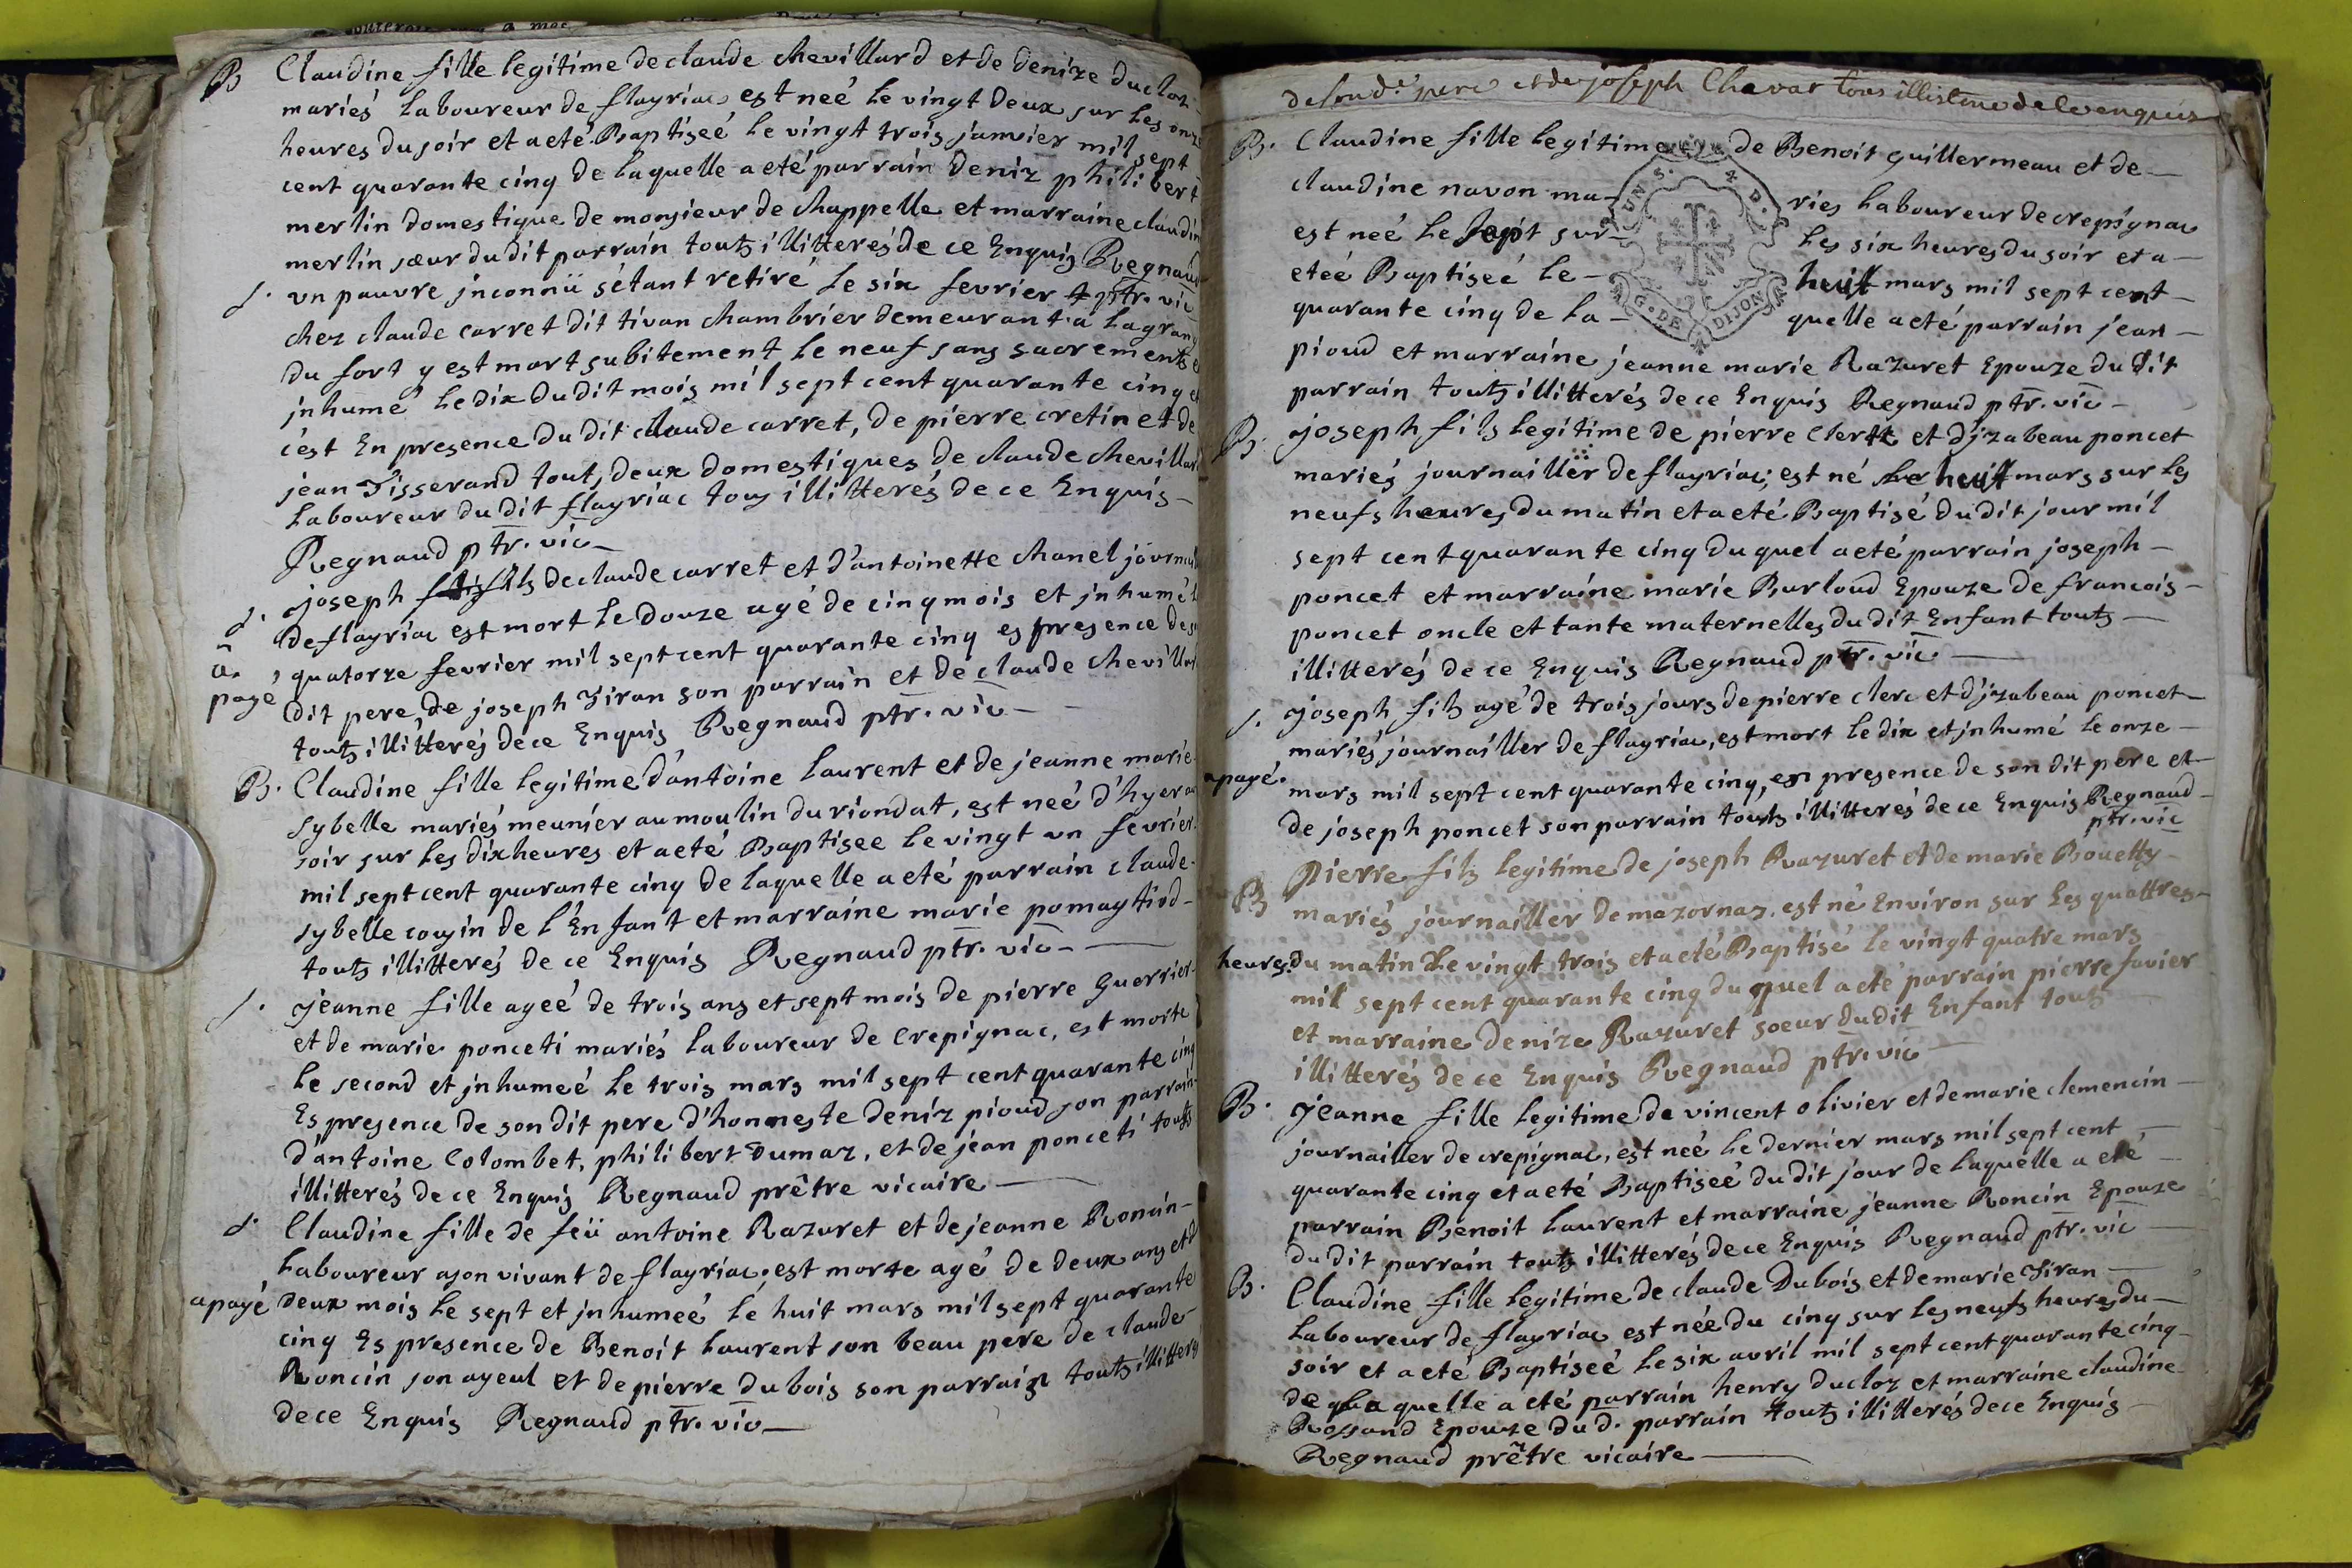 B Claudine fille legitime de claude chevillard et de denize ducloz
mariés laboureur de flayriac est neé le vingt deux sur les onze
heures du soir et a eté Baptiseé le vingt trois janvier mil sept
cent quarante cinq de laquelle a eté parrain deniz philibert
merlin domestique de monsieur de chappelle et marraine claudin
merlin sœur du dit parrain touts illitterés de ce Enquis Regnaud
ptr. vic
s. un pauvre jnconnü s'étant retiré le six fevrier
chez claude carret dit tivan chambrier demeurant a la grang
du fort y est mort subitement le neuf sans sacrements et
jnhumé le dix du dit mois mil sept cent quarante cinq et
c'est En presence du dit claude carret, de pierre cretin et de
jean Tisserand tout, deux domestiques de claude chevillard
laboureur du dit flayriac tous illitterés de ce Enquis
Regnaud ptr. vic
s. joseph fils de claude carret et d'antoinette chanel journal
de flayriac est mort le douze agé de cinq mois et jnhumé l
a payé quatorze fevrier mil sept cent quarante cinq es presence de s
dit pere, de joseph Tiran son parrain et de claude chevillard
touts illitterés de ce Enquis Regnaud ptr. vic
B. Claudine fille legitime d'antoine laurent et de jeanne marie
sybelle mariés meunier au moulin du riondat, est neé d'hyer au
soir sur les dix heures et a eté Baptisee le vingt un fevrier
mil sept cent quarante cinq de laquelle a eté parrain claude
sybelle cousin de l'Enfant et marraine marie pomaytiod
touts illitterés de ce Enquis Regnaud ptr. vic
s. jeanne fille ageé de trois ans et sept mois de pierre Guerrier
et de marie ponceti mariés laboureur de Crepignac, est morte
le second et jnhumeé le trois mars mil sept cent quarante cinq
Es presence de son dit pere d'honneste deniz pioud son parrain
d'antoine Colombet, philibert Dumaz, et de jean ponceti touts
illitterés de ce Enquis Regnaud prêtre vicaire
s. Claudine fille de feü antoine Razuret et de jeanne Roncin
laboureur a son vivant de flayriac, est morte agé de deux ans et d
a payé deux mois le sept et jnhumeé le huit mars mil sept quarante
cinq Es presence de Benoit laurent son beau pere de claude
Roncin son ayeul et de pierre dubois son parrain touts illitterés
de ce Enquis Regnaud ptr. vic
de son d.t pere et de joseph Chavar tous de ce enquis
B. Claudine fille legitime de Benoit guillermeau et de
claudine navon mariés laboureur de crepignac
est neé le sept sur les six heures du soir et a
eteé Baptiseé le huit mars mil sept cent
quarante cinq de laquelle a eté parrain jean
pioud et marraine jeanne marie Razuret Epouze du dit
parrain touts illitterés de ce Enquis Regnaud ptr. vic
B. joseph fils legitime de pierre Clertt et d'jzabeau poncet
mariés journaillier de flayriac; est né le huit mars sur les
neufs heures du matin et a eté Baptisé du dit jour mil
sept cent quarante cinq du quel a eté parrain joseph
poncet et marraine marie Burloud Epouze de francois
poncet oncle et tante maternelles du dit Enfant touts
illitterés de ce Enquis Regnaud ptr. vic
s. joseph fils agé de trois jours de pierre clerc et d'jzabeau poncet
mariés journaillier de flayriac, est mort le dix et jnhumé le onze
a payé. mars mil sept cent quarante cinq, en presence de son dit pere et
de joseph poncet son parrain touts illitterés de ce Enquis Regnaud
ptr. vic
B Pierre fils legitime de joseph Razuret et de marie Bouetty
mariés journaillier de mazornaz. est né Environ sur les quattres
heures du matin le vingt trois et a eté Baptisé le vingt quatre mars
mil sept cent quarante cinq du quel a eté parrain pierre favier
et marraine denize Razuret soeur du dit Enfant touts
illitterés de ce Enquis Regnaud ptr. vic
B. jeanne fille legitime de vincent olivier et de marie clemencin
journaillier de crepignac, est neé le dernier mars mil sept cent
quarante cinq et a eté Baptiseé du dit jour de laquelle a eté
parrain Benoit laurent et marraine jeanne Roncin Epouze
du dit parrain touts illitterés de ce Enquis Regnaud ptr. vic
B. Claudine fille legitime de claude Dubois et de marie Tiran
laboureur de flayriac est née du cinq sur les neufs heures du
soir et a eté Baptiseé le six avril mil sept cent quarante cinq
de la quelle a eté parrain henry ducloz et marraine claudine
Rossand Epouze du d. parrain touts illitterés de ce Enquis
Regnaud prêtre vicaire
UN S. 4 D.
G. DE DIJON